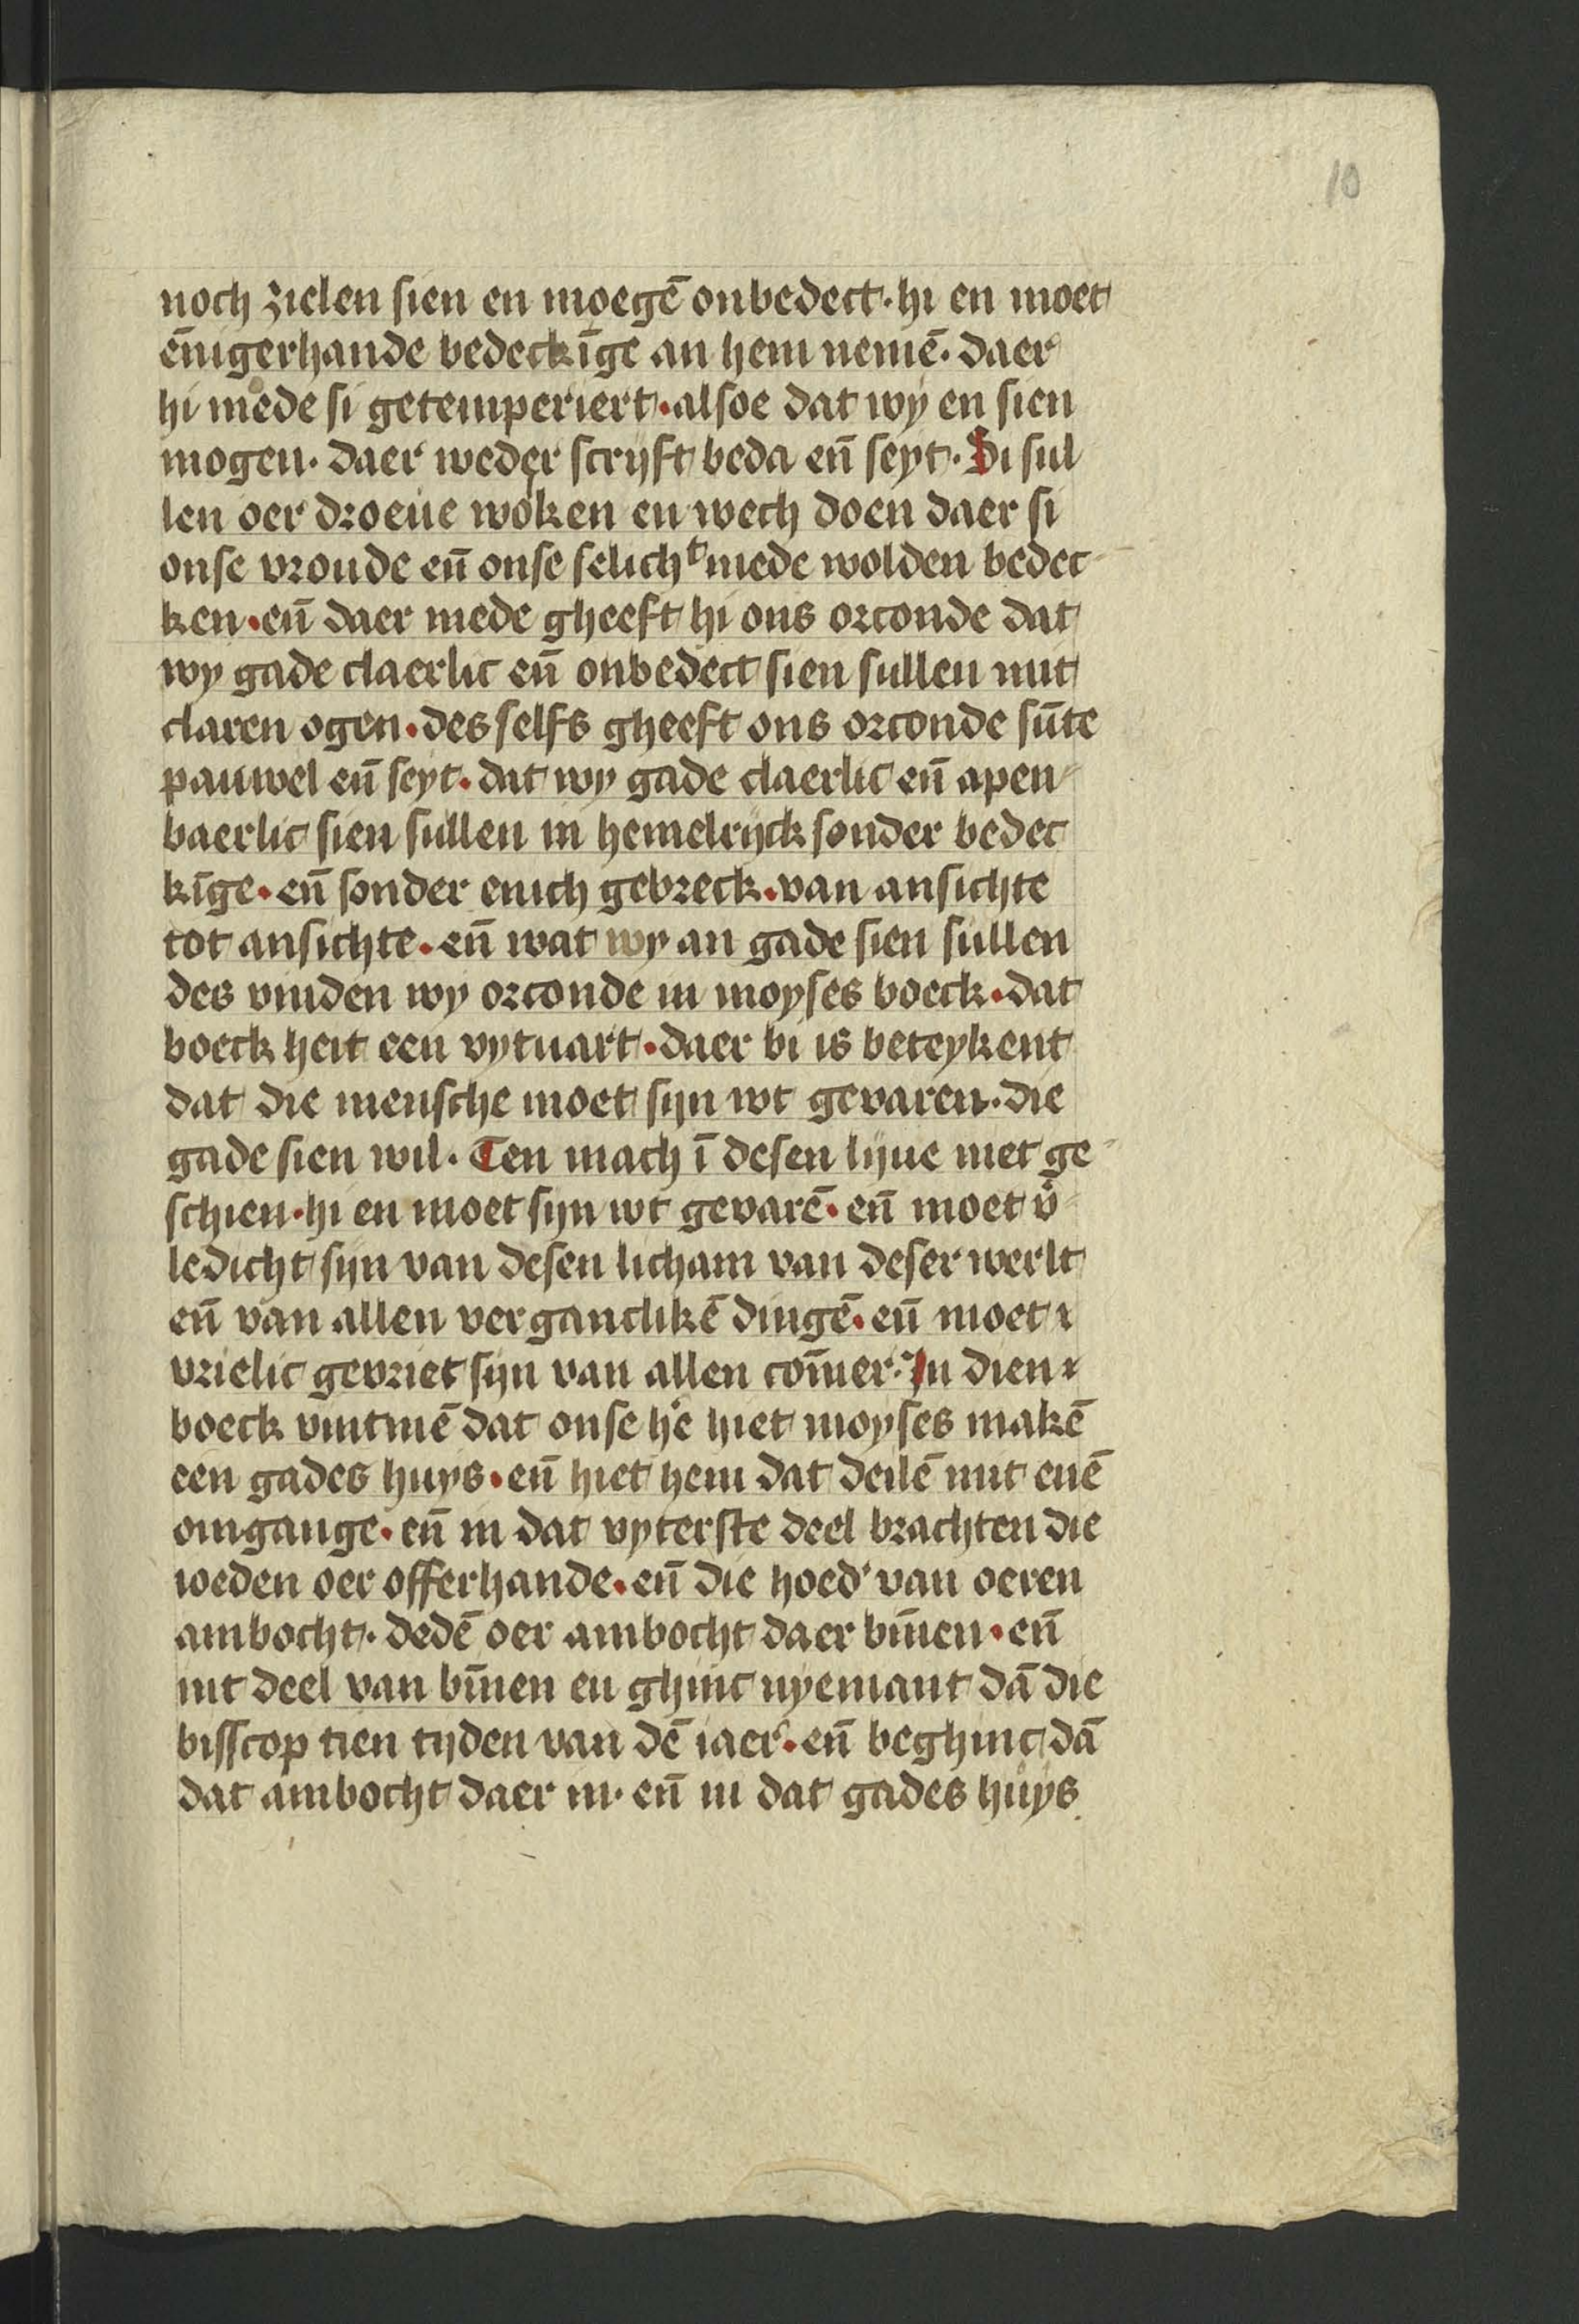 10
noch zielen sien en moegē onbedect · hi en moet
ēnigerhande bedeckīge an hem nemē · daer
hi mede si getemperiert · alsoe dat wy en sien
mogen · daer weder scryft beda en̄ seyt · Si sul
len oer droeue wolken en wech doen daer si
onse vroude en̄ onse selichᵗ mede wolden bedec
ken · en̄ daer mede gheeft hi ons orconde dat
wy gade claerlic en̄ onbedect sien sullen mit
claren ogen · des selfs gheeft ons orconde sūte
pauwel en̄ seyt · dat wy gade claerlic en̄ apen
baerlic sien sullen in hemelryck sonder bedec
kīge · en̄ sonder enich gebreck · van ansichte
tot ansichte · en̄ wat wy an gade sien sullen
des vinden wy orconde in moyses boeck · dat
boeck heit een vytuart · daer bi is beteykent
dat die mensche moet sijn wt gevaren · die
gade sien wil · Ten mach ī desen lijue niet ge
schien · hi en moet sijn wt gevarē · en̄ moet v̄
ledicht sijn van desen licham van deser werlt
en̄ van allen verganclikē dingē · en̄ moet
vrielic gevriet sijn van allen com̄er · In dien
boeck vintmē dat onse he hiet moyses makē
een gades huys · en̄ hiet hem dat deilē mit enē
omgange · en̄ in dat vyterste deel brachten die
ioeden oer offerhande · en̄ die hoed' van oeren
ambocht · dedē oer ambocht daer bin̄en · en̄
int deel van bin̄en en ghinc nyemant dā die
bisscop tien tijden van dē iaer · en̄ beghinc dā
dat ambocht daer in · en̄ in dat gades huys